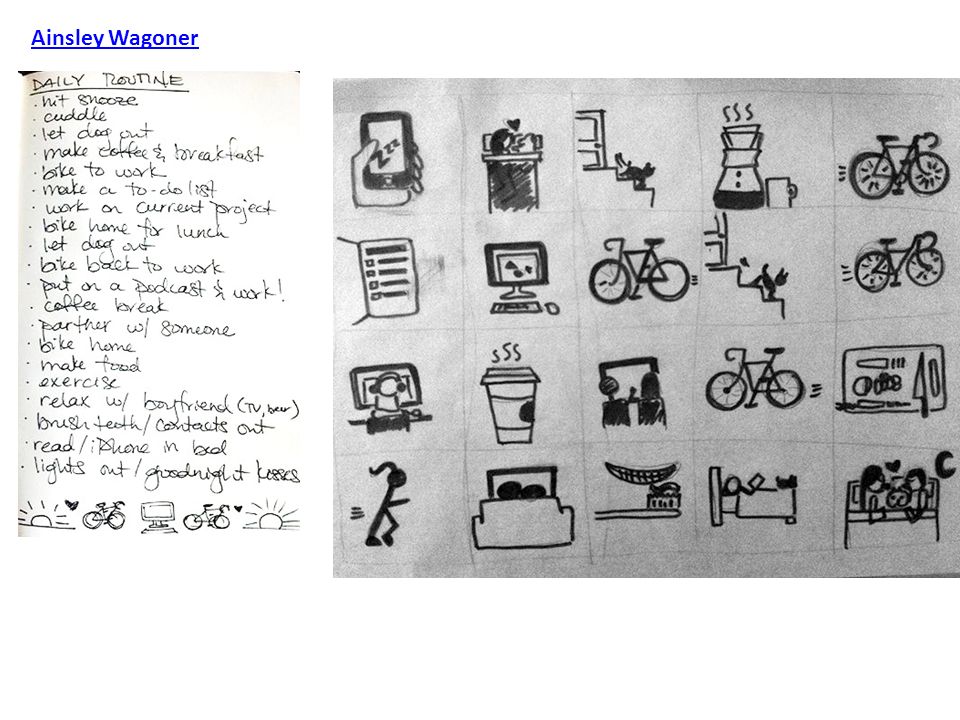 Ainsley Wagoner
DAILY ROUTINE
· hit snooze
· cuddle
· let dog out
· make coffee & breakfast
· bike to work
· make a to-do list
· work on current project
· bike home for lunch
· let dog out
· bike back to work
· put on a podcast & work!
· coffee break
· partner w/ someone
· bike home
· make food
· exercise
· relax w/ boyfriend (TV, beer)
· brush teeth/contacts out
· read/iPhone in bed
· lights out/goodnight kisses
zzz